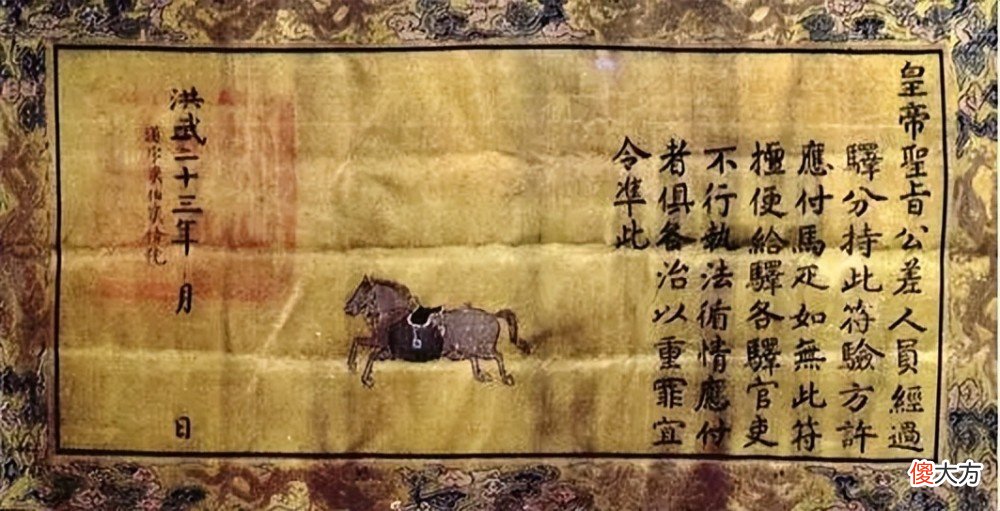 皇帝聖旨公差人員經過
驛分持此符驗方許
應付馬疋如無此符
擅便給驛各驛官吏
不行執法循情應付
者俱各治以重罪宜
令準此
洪武二十三年 月 日
傻大方